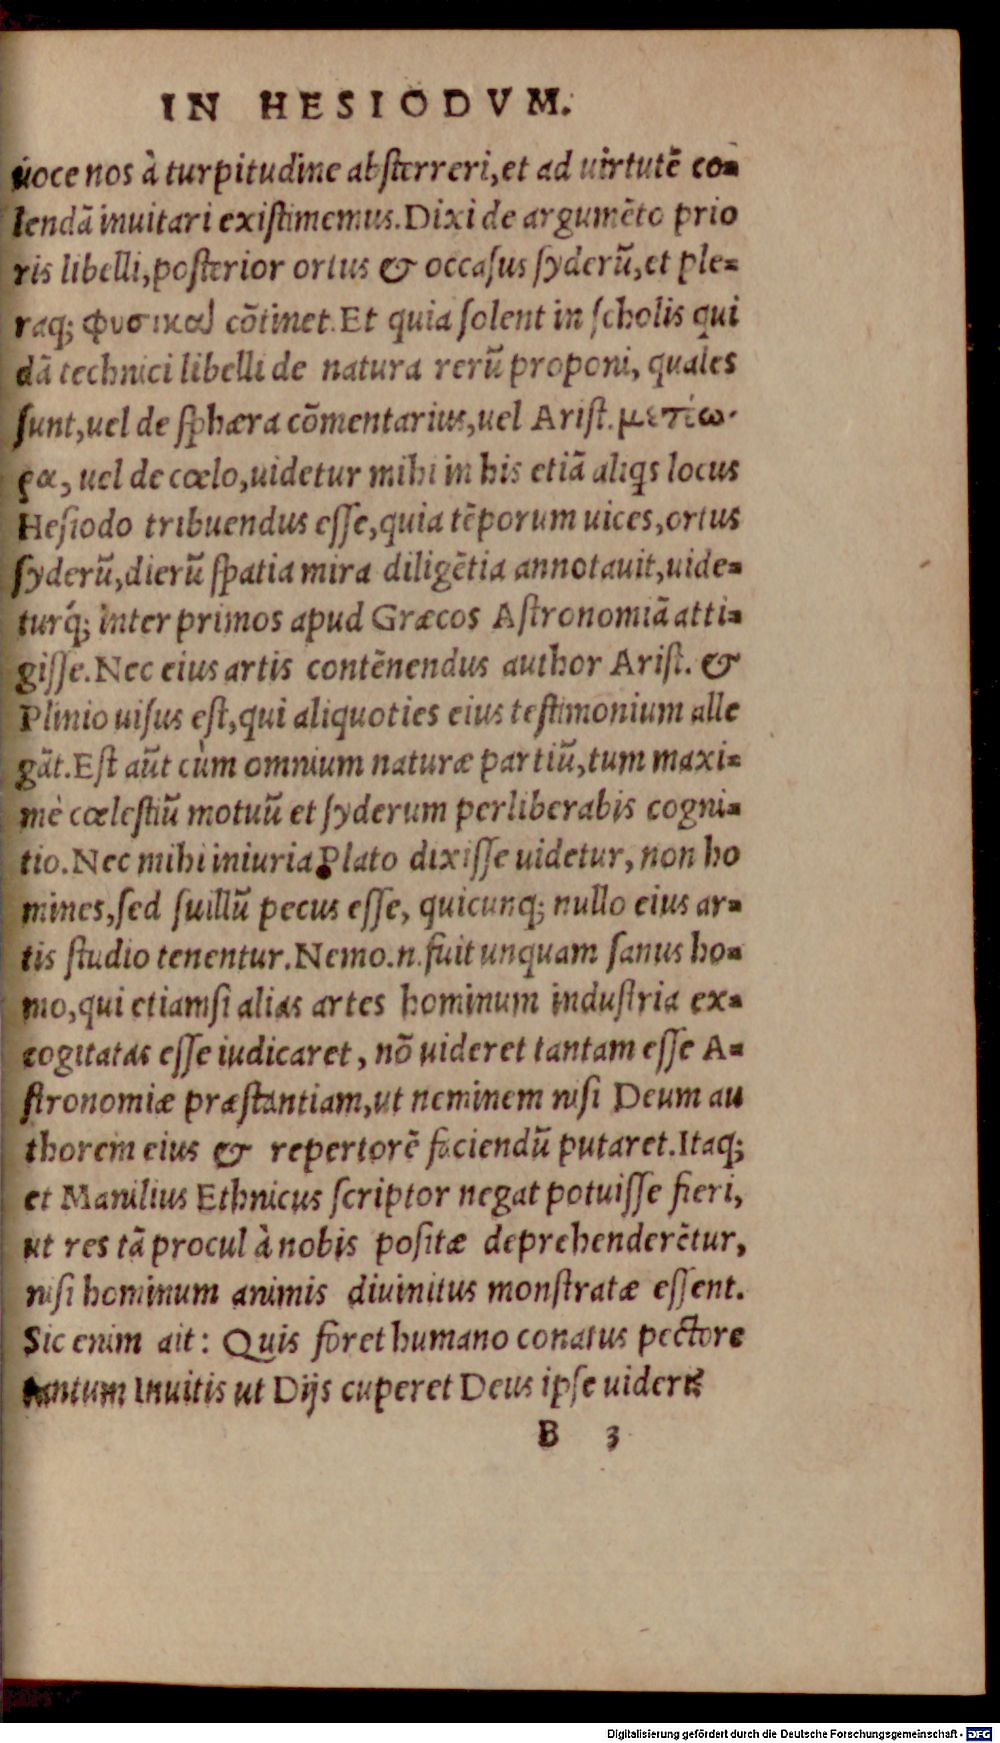 IN HESIODVM.
uoce nos à turpitudine absterreri, et ad uirtutē co-
lendā inuitari existimemus. Dixi de argumēto prio
ris libelli, posterior ortus & occasus syderũ, et ple-
raq; φυσικὰ cōtinet. Et quia solent in scholis qui
dā technici libelli de natura rerũ proponi, quales
sunt, uel de sphæra cōmentarius, uel Arist. μετέω-
ρα, uel de cœlo, uidetur mihi in his etiā aliqs locus
Hesiodo tribuendus esse, quia tēporum uices, ortus
syderũ, dierũ spatia mira diligētia annotauit, uide-
turq́; inter primos apud Græcos Astronomiā atti-
gisse. Nec eius artis contēnendus author Arist. &
Plinio uisus est, qui aliquoties eius testimonium alle
gāt. Est aũt cùm omnium naturæ partiũ, tum maxi-
mè cœlestiũ motuũ et syderum perliberabis cogni-
tio. Nec mihi iniuria Plato dixisse uidetur, non ho
mines, sed suillũ pecus esse, quicunq; nullo eius ar-
tis studio tenentur. Nemo .n. fuit unquam sanus ho-
mo, qui etiamsi alias artes hominum industria ex-
cogitatas esse iudicaret, nō uideret tantam esse A-
stronomiæ præstantiam, ut neminem nisi Deum au
thorem eius & repertorē faciendũ putaret. Itaq;
et Manilius Ethnicus scriptor negat potuisse fieri,
ut res tā procul à nobis positæ deprehenderētur,
nisi hominum animis diuinitus monstratæ essent.
Sic enim ait: Quis foret humano conatus pectore
tantum Inuitis ut Dijs cuperet Deus ipse uideri?
B 3
Digitalisierung gefördert durch die Deutsche Forschungsgemeinschaft - DFG